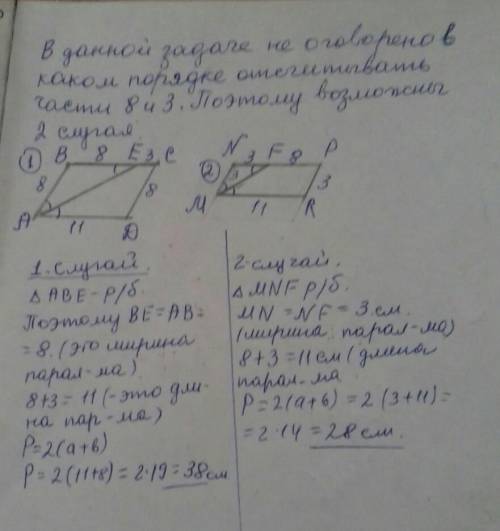 В данной задаче не оговорено в
каком порядке отсчитывать
части 8 и 3. Поэтому возможны
2 случая
① B 8 E 3 C
8 8
A 11 D
② N 3 F 8 P
3 3
M 11 R
1. случай.
△ABE - р/б.
Поэтому BE = AB =
= 8. (это ширина
парал-ма)
8+3 = 11 (- это дли-
на пар-ма)
P = 2(a+b)
P = 2(11+8) = 2·19 = 38 см
2 случай.
△MNF р/б.
MN = NF = 3 см.
(ширина парал-ма)
8+3 = 11 см (длина
парал-ма
P = 2(a+b) = 2(3+11) =
= 2·14 = 28 см.